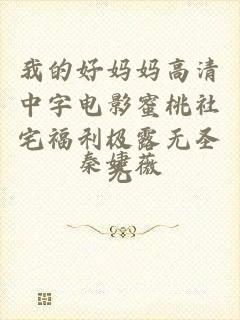 我的好妈妈高清
中字电影蜜桃社
宅福利极露无圣
光
秦婕薇